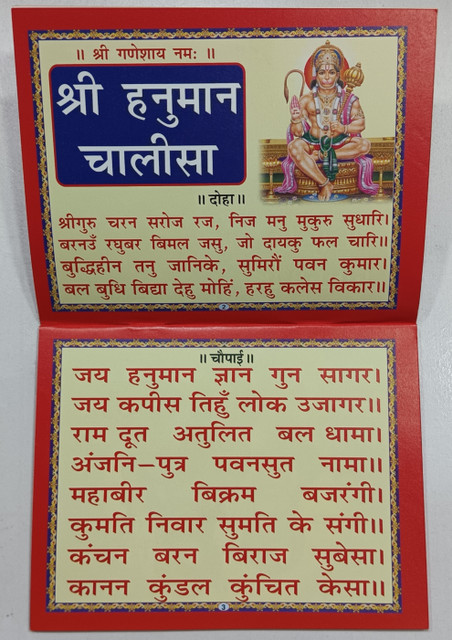 ॥ श्री गणेशाय नमः ॥
श्री हनुमान
चालीसा
॥ दोहा ॥
श्रीगुरु चरन सरोज रज, निज मनु मुकुरु सुधारि।
बरनउँ रघुबर बिमल जसु, जो दायकु फल चारि॥
बुद्धिहीन तनु जानिके, सुमिरौं पवन कुमार।
बल बुधि बिद्या देहु मोहिं, हरहु कलेस विकार॥
2
॥ चौपाई ॥
जय हनुमान ज्ञान गुन सागर।
जय कपीस तिहुँ लोक उजागर॥
राम दूत अतुलित बल धामा।
अंजनि–पुत्र पवनसुत नामा॥
महाबीर बिक्रम बजरंगी।
कुमति निवार सुमति के संगी॥
कंचन बरन बिराज सुबेसा।
कानन कुंडल कुंचित केसा॥
3